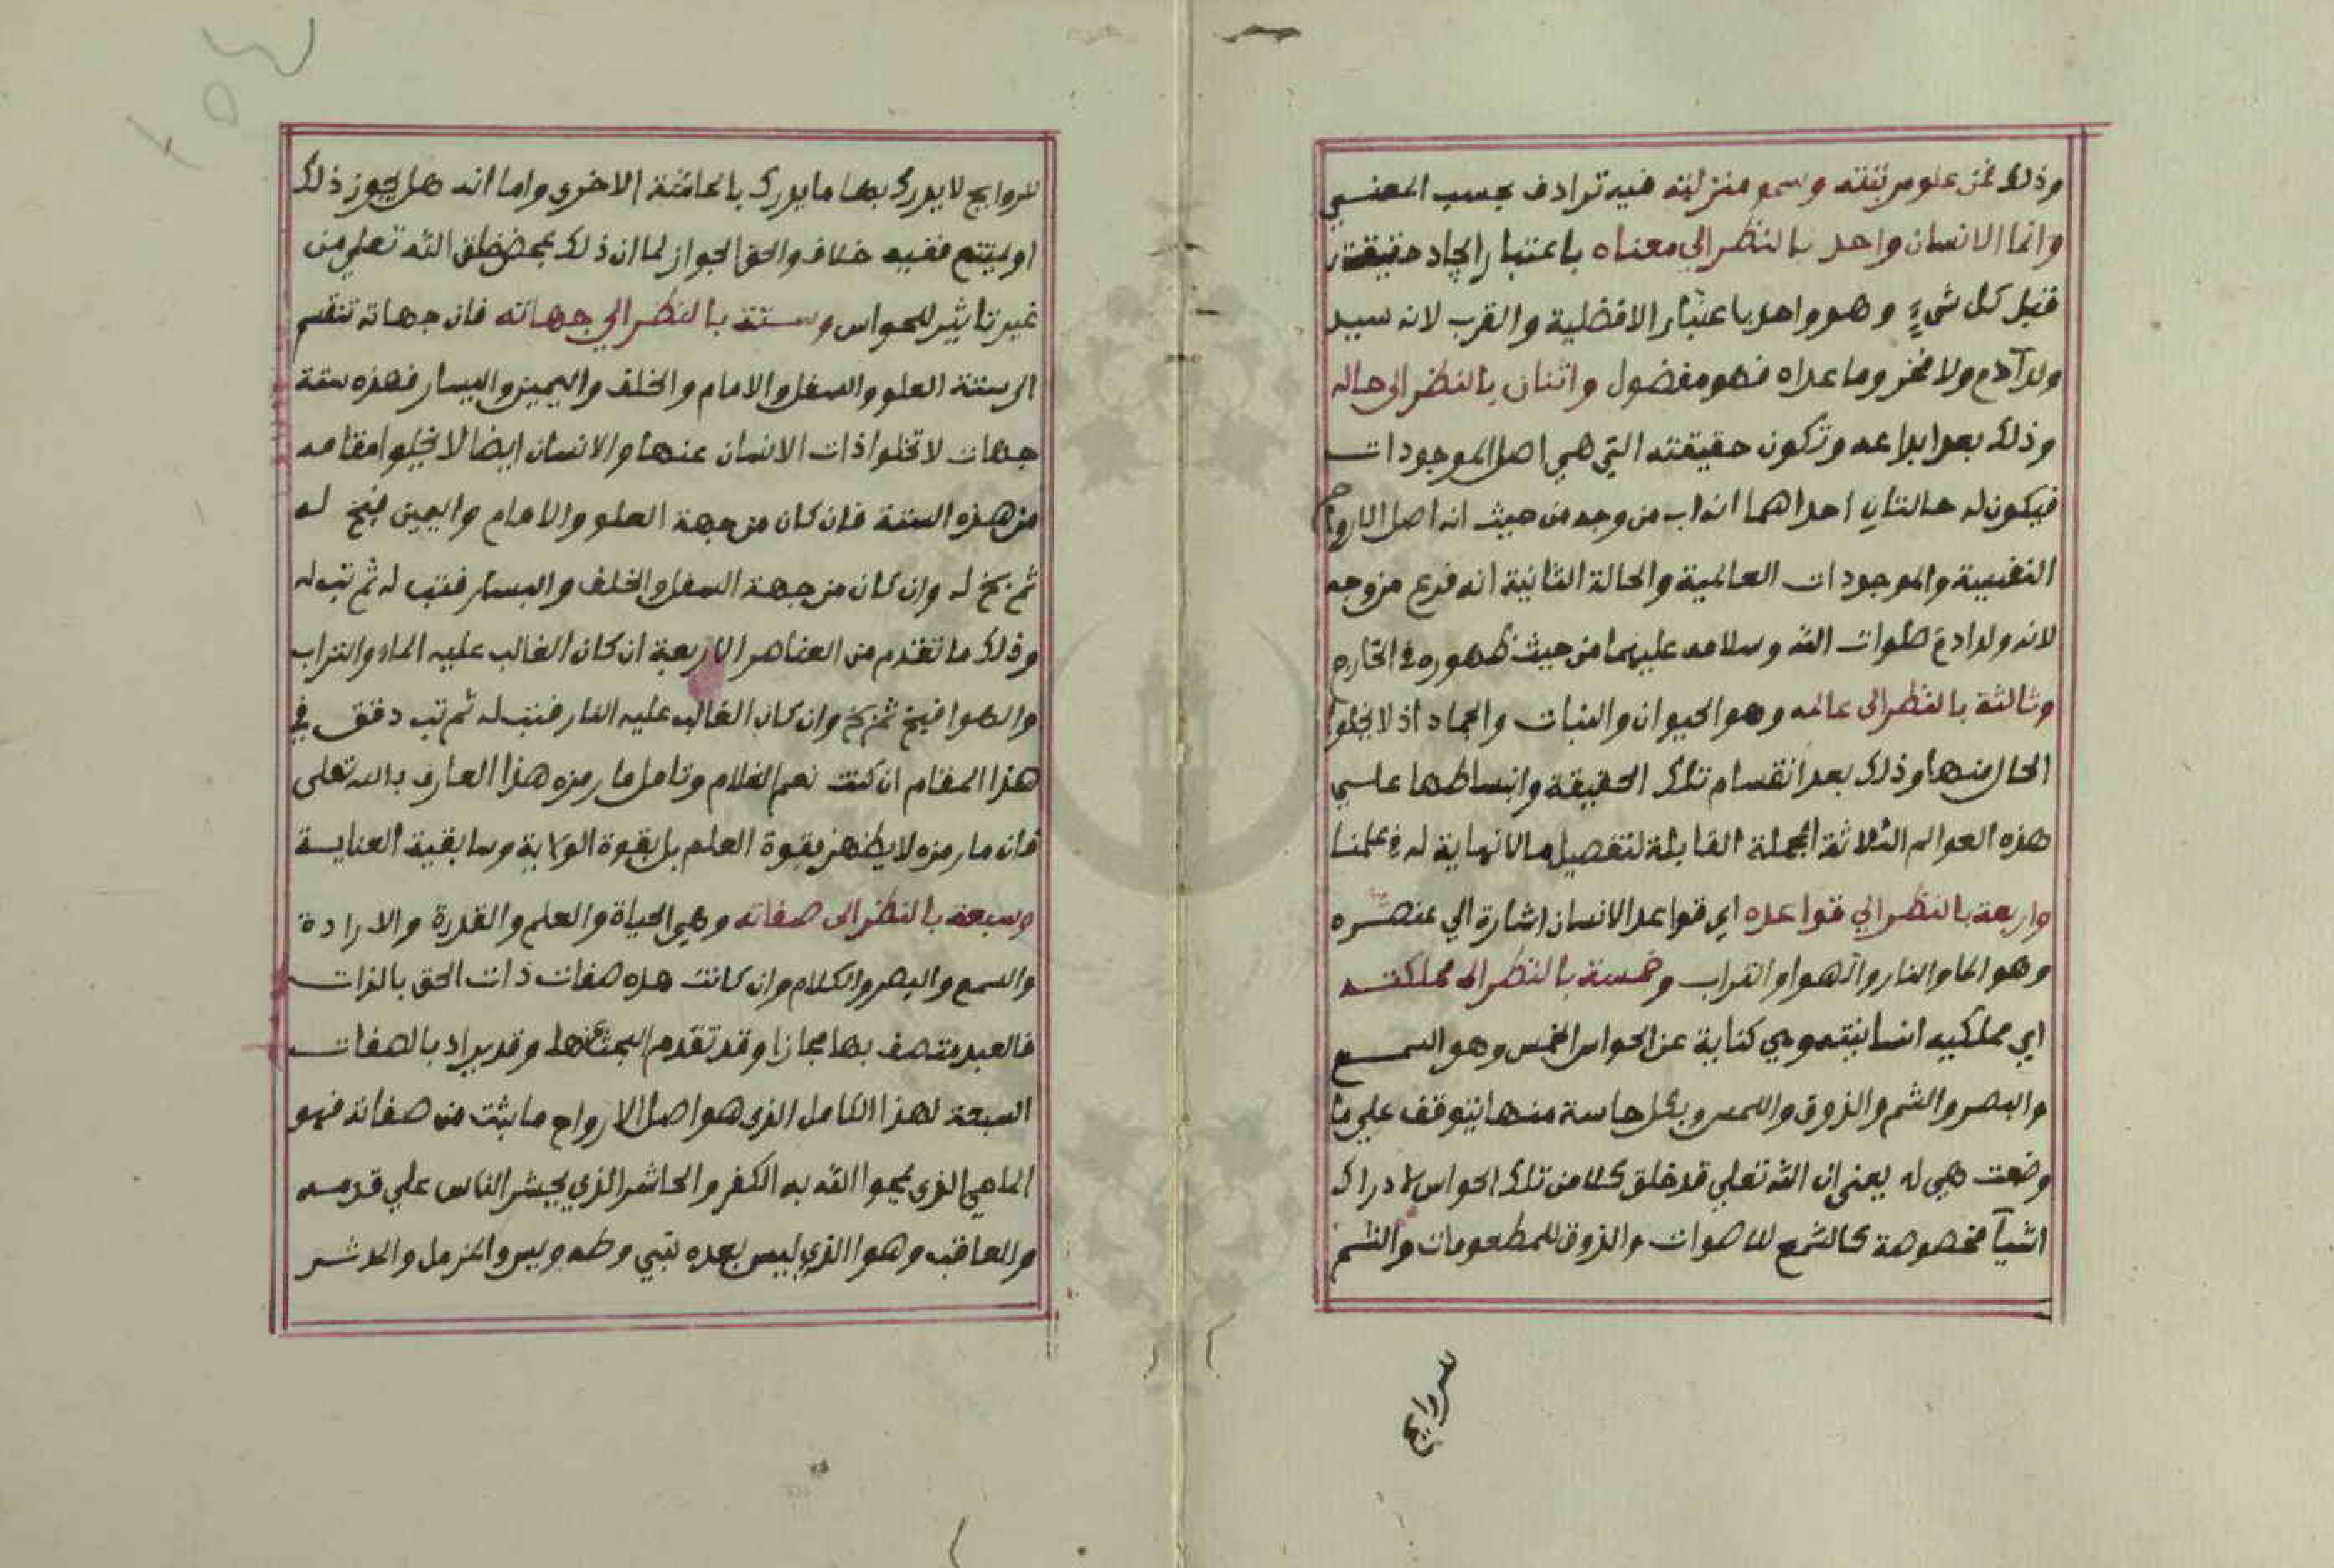 وذلك عن علو مرتبته وسمو منزلته فيه ترادف بحسب المعني
وانما الانسان واحد بالنظر الي معناه باعتبار ايجاد حقيقته
قبل كل شيء وهو واحد باعتبار الافضلية والقرب لانه سيد
ولد آدم ولا فخر وما عداه فهو مفضول واثنان بالنظر الى حاله
وذلك بعد ابداعه وتكون حقيقته التي هي اصل الموجودات
فيكون له حالتان احداهما انه اب من وجه من حيث انه اصل الارواح
النفيسة والموجودات العالمية والحالة الثانية انه فرع من وجه
لانه ولد ادم صلوات الله وسلامه عليهما من حيث ظهوره في الخارج
وثالثة بالنظر الى عالمه وهو الحيوان والنبات والجماد اذ لا يخلوا
الحال منها وذلك بعد انقسام تلك الحقيقة وانبساطها علي
هذه العوالم الثلاثة المجملة القابلة لتفصيل ما لا نهاية له في علمنا
واربعة بالنظر الي قواعده اي قواعد الانسان اشارة الي عنصره
وهو الما والنار والهوا والتراب وخمسة بالنظر الى مملكته
اي مملكيه انسانيته وهي كناية عن الحواس الخمس وهو السمع
والبصر والشم والذوق واللمس وبكل حاسة منها يتوقف علي ما
وضعت هي له يعني ان الله تعلي قد خلق كلا من تلك الحواس لادراك
اشيآ مخصوصة كالسمع للاصوات والذوق للمطعومات والشم
للروايح
للروايح لا يدرك بها ما يدرك بالحاسة الاخرى واما انه هل يجوز ذلك
او يمتنع ففيه خلاف والحق الجواز لما ان ذلك بمحض خلق الله تعلي من
غير تاثير للحواس وستة بالنظر الي جهاته فان جهاته تنقسم
الى ستة العلو والسفل والامام والخلف واليمين واليسار فهذه ستة
جهات لا تخلوا ذات الانسان عنها والانسان ايضا لا يخلوا مقامه
من هذه الستة فان كان من جهة العلو والامام واليمين فبخ له
ثم بخ له وان كان من جهة السفل والخلف واليسار فتب له ثم تب له
وذلك ما تقدم من العناصر الاربعة ان كان الغالب عليه الماء والتراب
والهوا فبخ ثم بخ وان كان الغالب عليه النار فتب له ثم تب دقق في
هذا المقام ان كنت نعم الغلام وتامل ما رمزه هذا العارف بالله تعلى
فان ما رمزه لا يظهر بقوة العلم بل بقوة الولاية وسابقية العناية
وسبعة بالنظر الى صفاته وهي الحياة والعلم والقدرة والارادة
والسمع والبصر والكلام وان كانت هذه صفات ذات الحق بالذات
فالعبد متصف بها مجازا وقد تقدم البحث عنها وقد يراد بالصفات
السبعة لهذا الكامل الذي هو اصل الارواح ما يثبت من صفاته فهو
الماحي الذي يمحوا الله به الكفر والحاشر الذي يحشر الناس علي قدمه
والعاقب وهوا الذي ليس بعده نبي وطه ويس والمزمل والمدثر